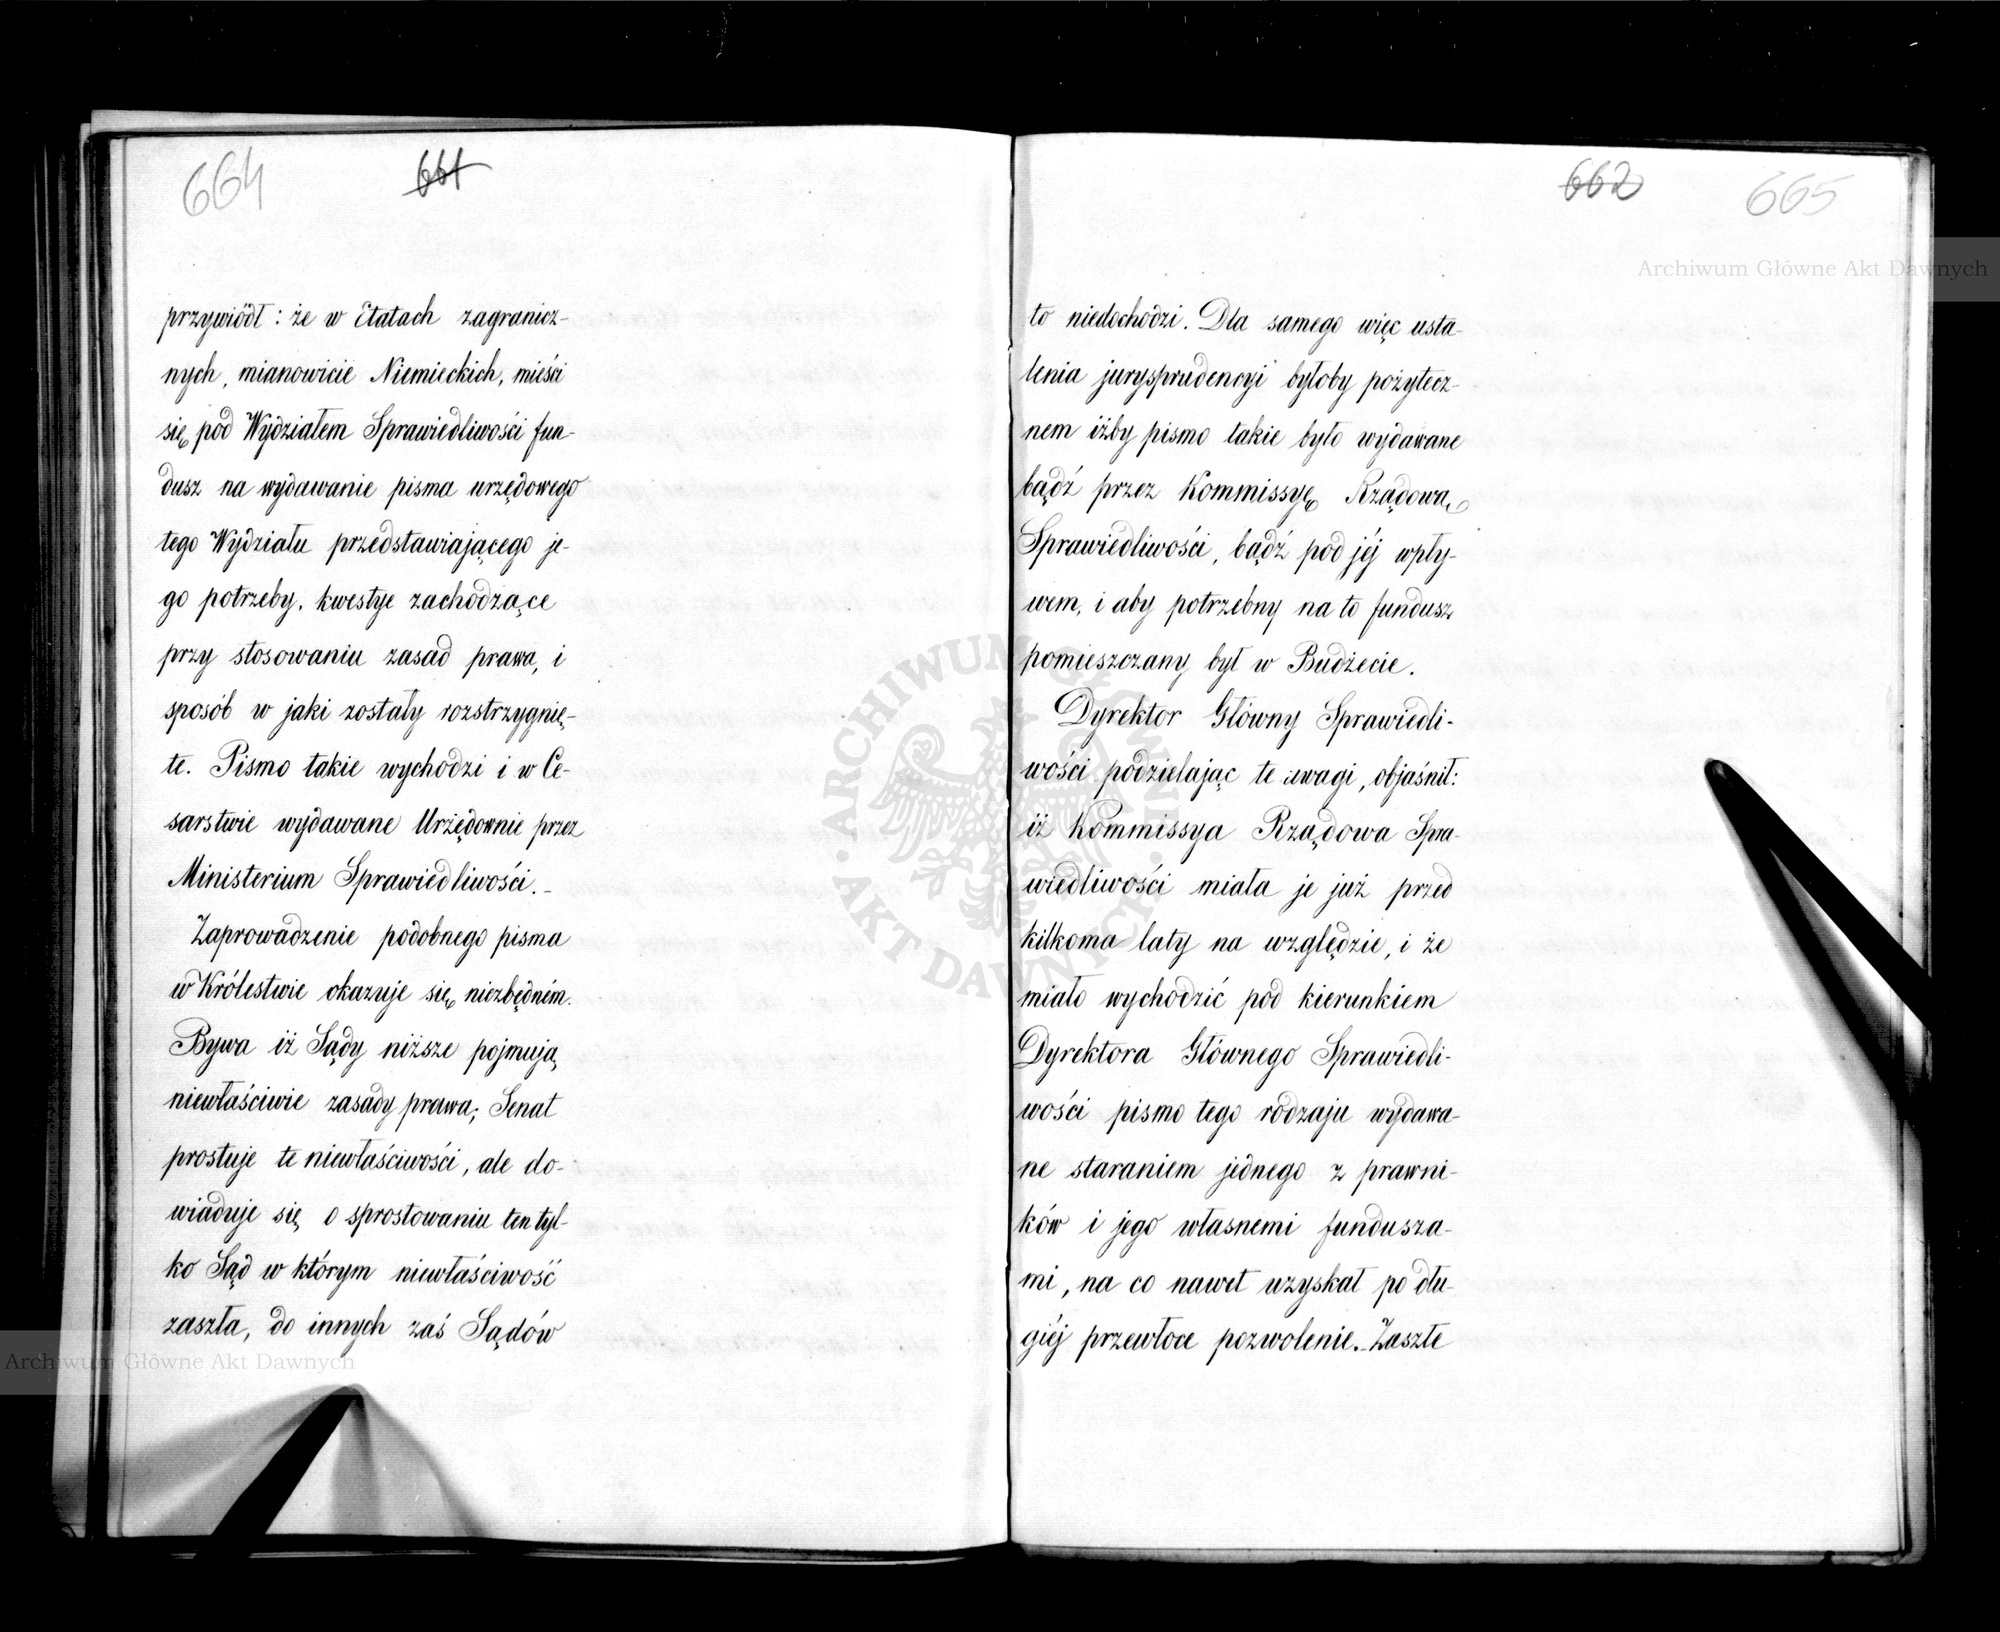 664 661
przywiódł: że w Etatach zagranicz-
nych, mianowicie Niemieckich, mieści
się pod Wydziałem Sprawiedliwości fun-
dusz na wydawanie pisma urzędowego
tego Wydziału przedstawiającego je-
go potrzeby, kwestye zachodzące
przy stosowaniu zasad prawa, i
sposób w jaki zostały rozstrzygnię-
te. Pismo takie wychodzi i w Ce-
sarstwie wydawane Urzędownie przez
Ministerium Sprawiedliwości.-
Zaprowadzenie podobnego pisma
w Królestwie okazuje się niezbędném.
Bywa iż Sądy niższe pojmują
niewłaściwie zasady prawa; Senat
prostuje te niewłaściwości, ale do-
wiaduje się o sprostowaniu ten tyl-
ko Sąd w którym niewłaściwość
zaszła, do innych zaś Sądów
662 665
to niedochodzi. Dla samego więc usta-
lenia jurysprudencyi byłoby pożytecz-
nem iżby pismo takie było wydawane
bądź przez Kommissyę Rządową
Sprawiedliwości, bądź pod jéj wpły-
wem, i aby potrzebny na to fundusz
pomieszczany był w Budżecie.
Dyrektor Główny Sprawiedli-
wości podzielając te uwagi, objaśnił:
iż Kommissya Rządowa Spra-
wiedliwości miała je już przed
kilkoma laty na względzie, i że
miało wychodzić pod kierunkiem
Dyrektora Głównego Sprawiedli-
wości pismo tego rodzaju wydawa-
ne staraniem jednego z prawni-
ków i jego własnemi fundusza-
mi, na co nawet uzyskał po dłu-
giéj przewłoce pozwolenie.- Zaszłe
Archiwum Główne Akt Dawnych
ARCHIWUM GŁÓWNE
AKT DAWNYCH
Archiwum Główne Akt Dawnych